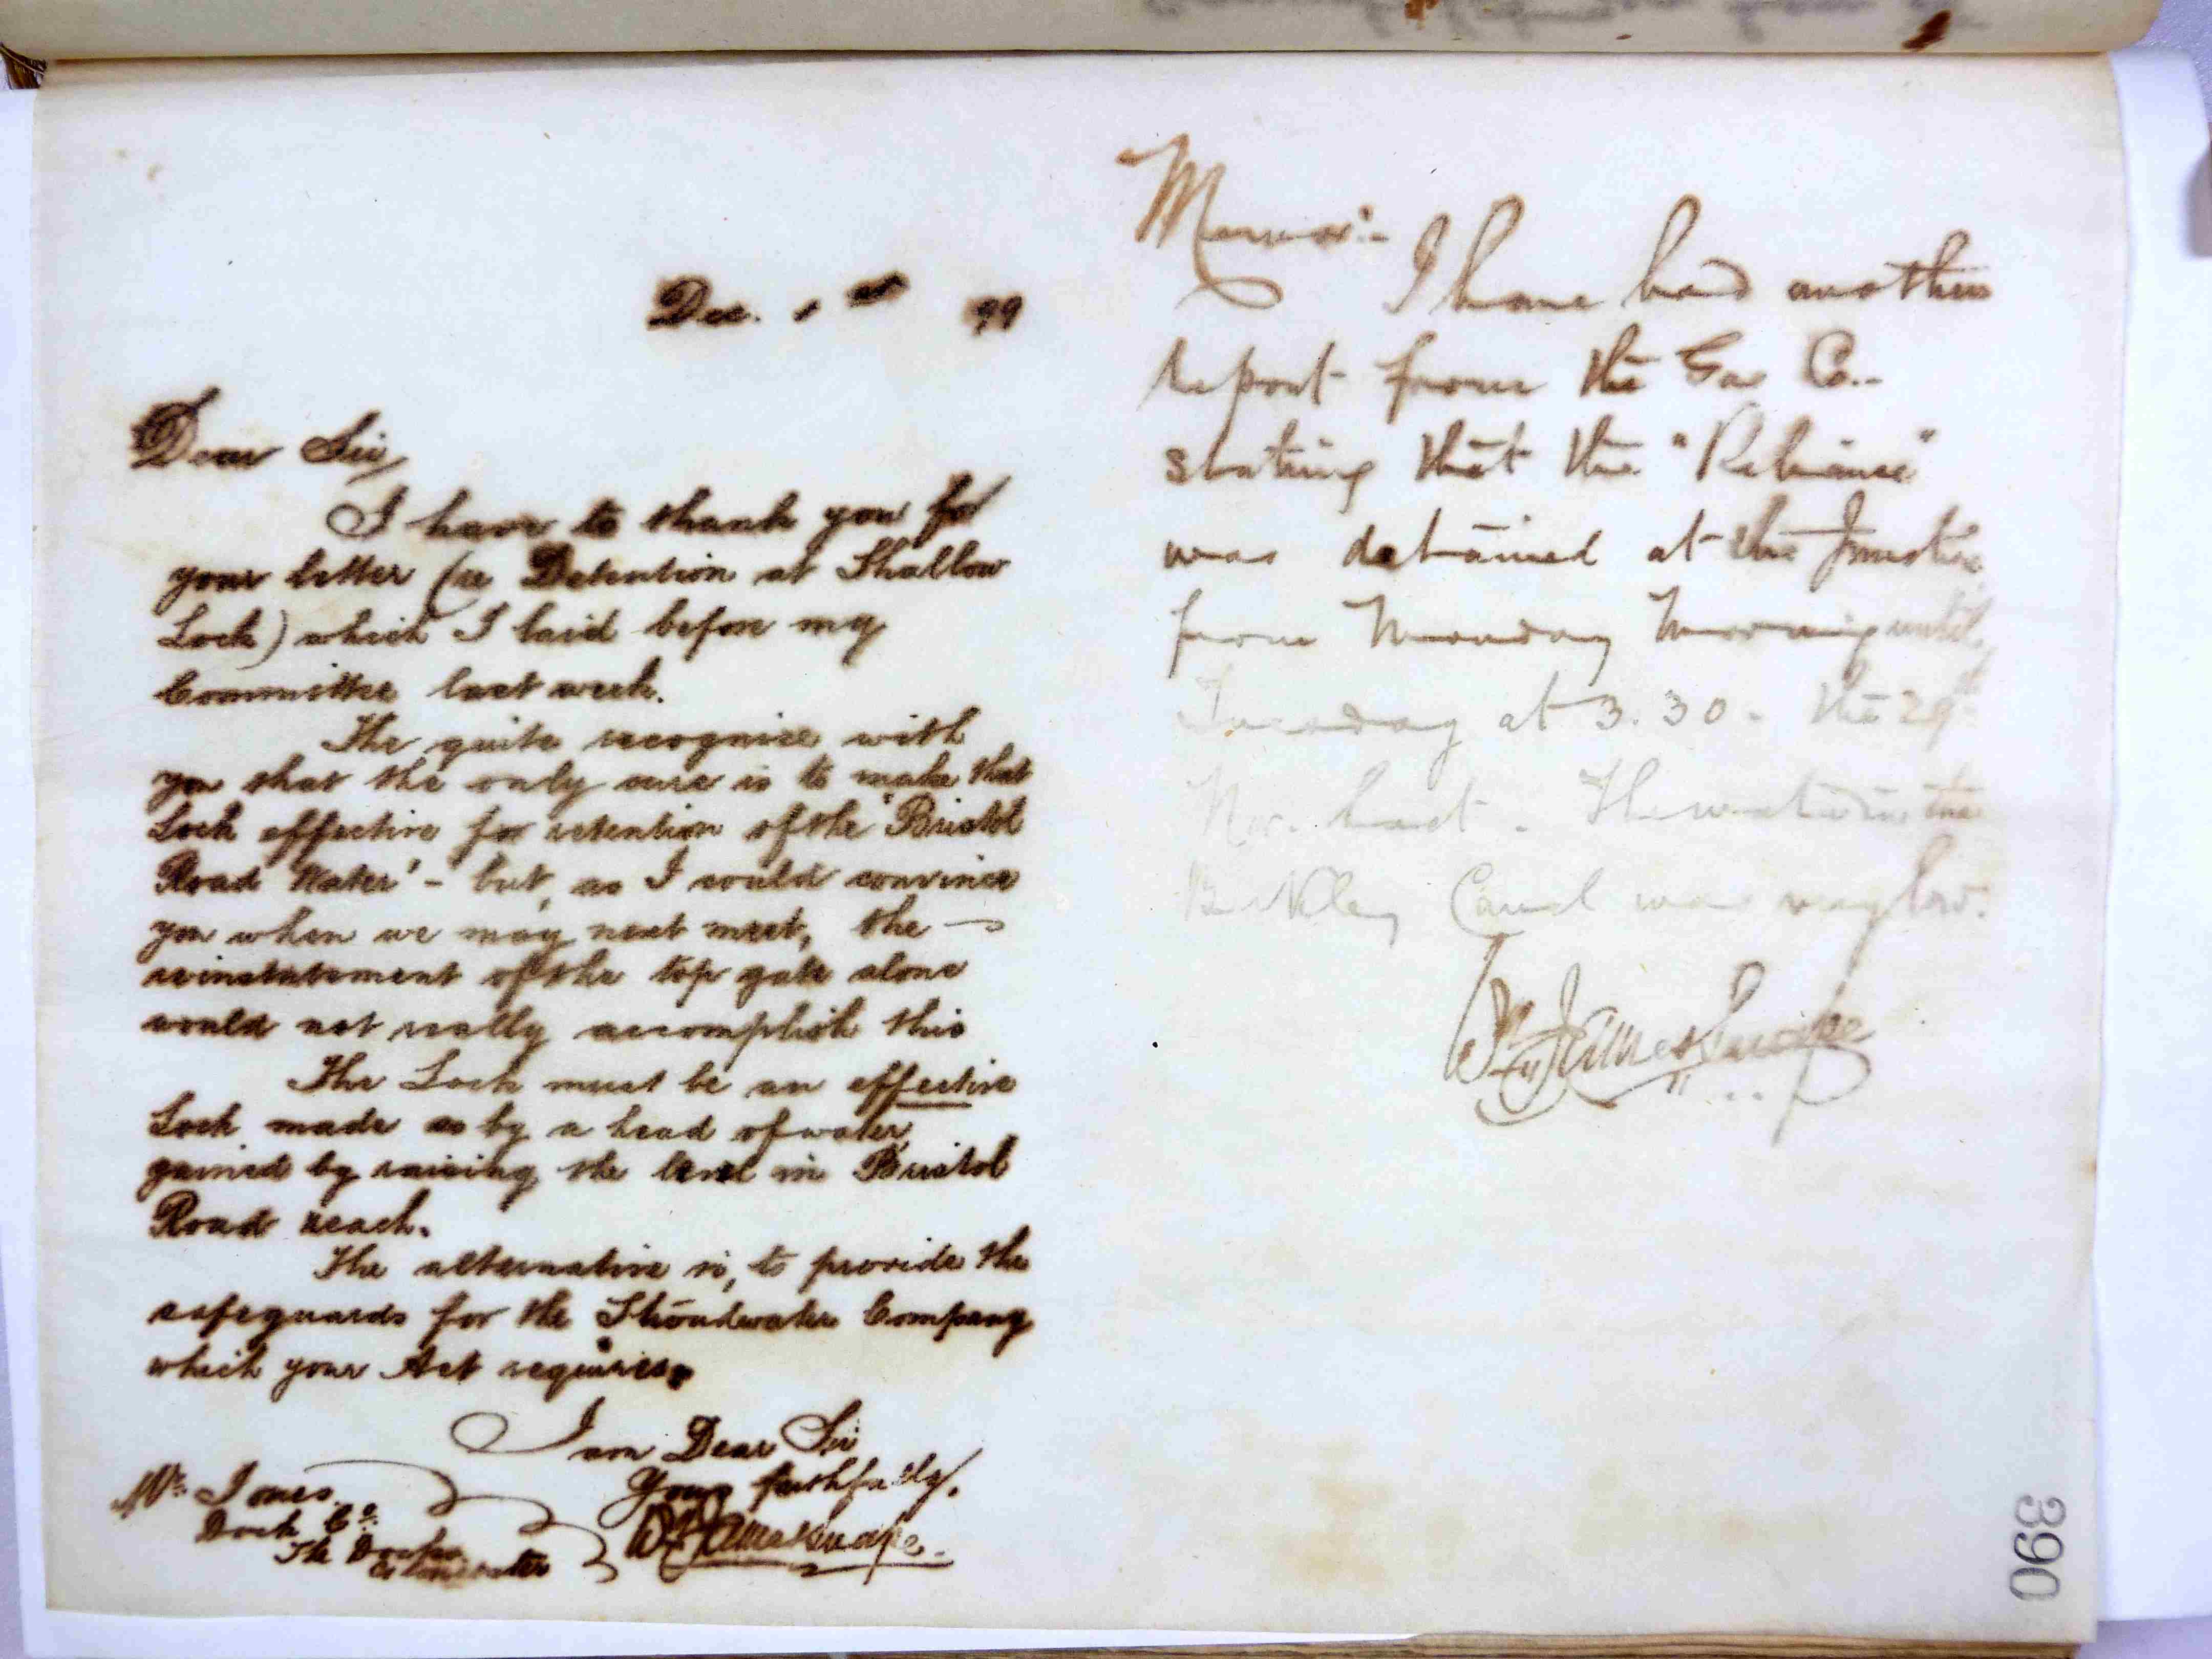 Dec. 1st 99
Dear Sir,
I have to thank you for
your letter (re Detention at Shallow
Lock) which I laid before my
Committee last week.
The quite recognise with
you that the only cure is to make that
Lock effective for retention of the 'Bristol
Road Water' - but, as I could convince
you when we may next meet, the
reinstatement of the top gate alone
would not really accomplish this
The Lock must be an effective
Lock made so by a head of water,
gained by raising the level in Bristol
Road reach.
The alternative is, to provide the
safeguards for the Stroudwater Company
which your Act requires.
I am Dear Sir
Yours faithfully.
Mr. Jones.
Dock Co.
The Docks
Gloucester
W. J. Snape.
Memo:-
I have had another
report from the Gas Co.-
stating that the "Reliance"
was detained at the Junction
from Monday Morning until
Tuesday at 3.30 - the 29th
Nov. last. The water in the
Berkley Canal was very low.
Snape
390